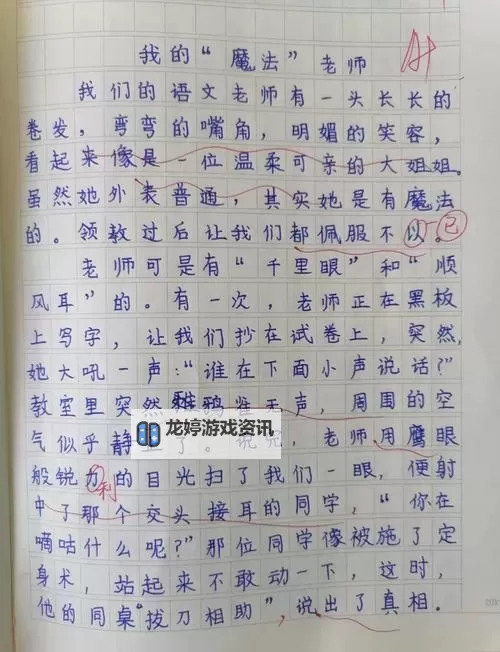 我的“魔法”老师
A+
我们的语文老师有一头长长的
卷发，弯弯的嘴角，明媚的笑容，
看起来像是一位温柔可亲的大姐姐。
虽然她外表普通，其实她是有魔法
的。领教过后让我们都佩服不以。已
老师可是有“千里眼”和“顺
风耳”的。有一次，老师正在黑板
上写字，让我们抄在试卷上，突然，
她大吼一声：“谁在下面小声说话？”
教室里突然鸦雀无声，周围的空
龙婷游戏资讯
气似乎静止了。说完，老师用鹰眼
般锐力的目光扫了我们一眼，便射
利
中了那个交头接耳的同学，“你在
嘀咕什么呢？”那位同学像被施了定
身术，站起来不敢动一下，这时，
他的同桌“拔刀相助”，说出了真相。